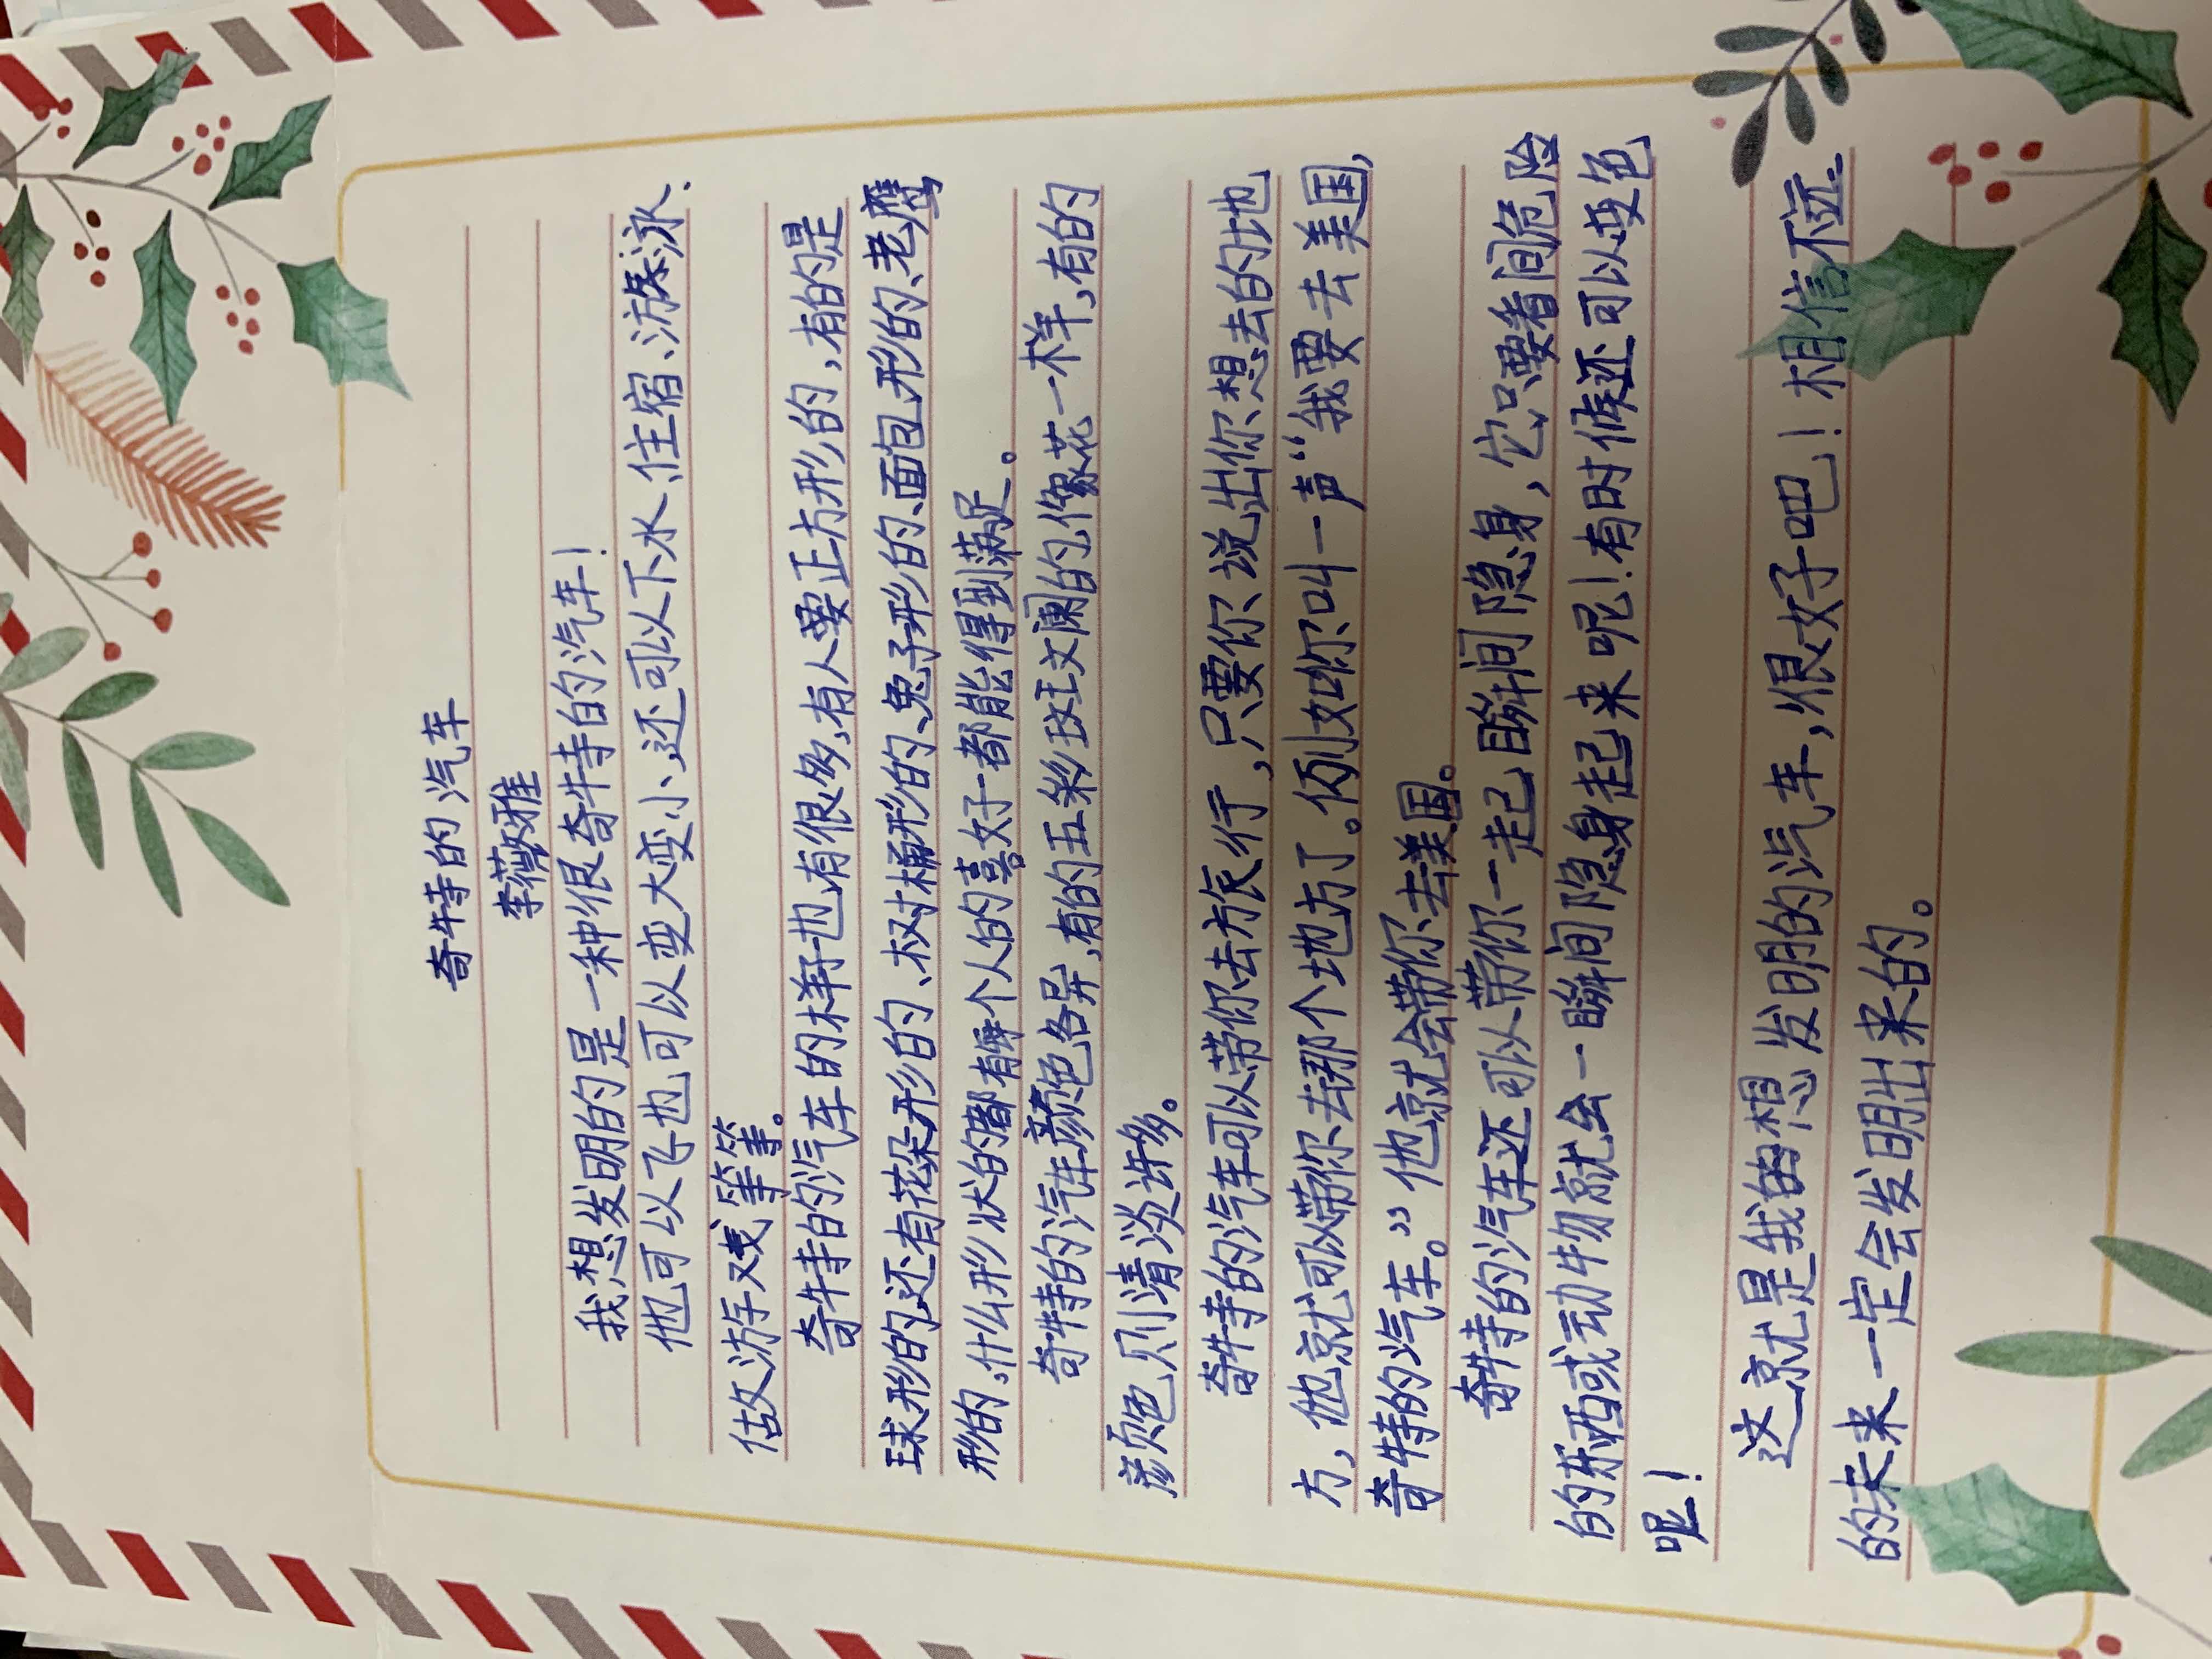 奇特的汽车
李薇雅
我想发明的是一种很奇特的汽车!
他可以飞也可以变大变小,还可以下水、住宿、游泳、
做游戏等等。
奇特的汽车的样子也有很多,有人要正方形的,有的是
球形的,还有花朵形的、树桶形的、兔子形的、面包形的、老鹰
形的,什么形状的都有每个人的喜好都能得到满足。
奇特的汽车颜色各异,有的五彩玟斓的,像花一样,有的
颜色则清淡许多。
奇特的汽车可以带你去旅行,只要你说出你想去的地
方,他就可以带你去那个地方了。例如你叫一声“我要去美国,
奇特的汽车。”他就会带你去美国。
奇特的汽车还可以带你一起瞬间隐身,它只要看间危险
的东西或动物就会一瞬间隐身起来呢!有时候还可以变色
呢!
这就是我的想发明的汽车,很好吧!相信不
的未来一定会发明出来的。